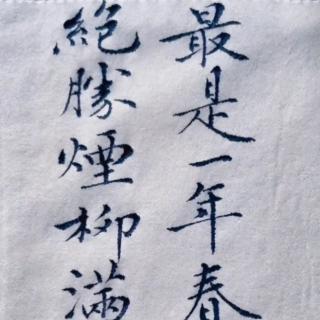 最是一年春
絕勝煙柳滿